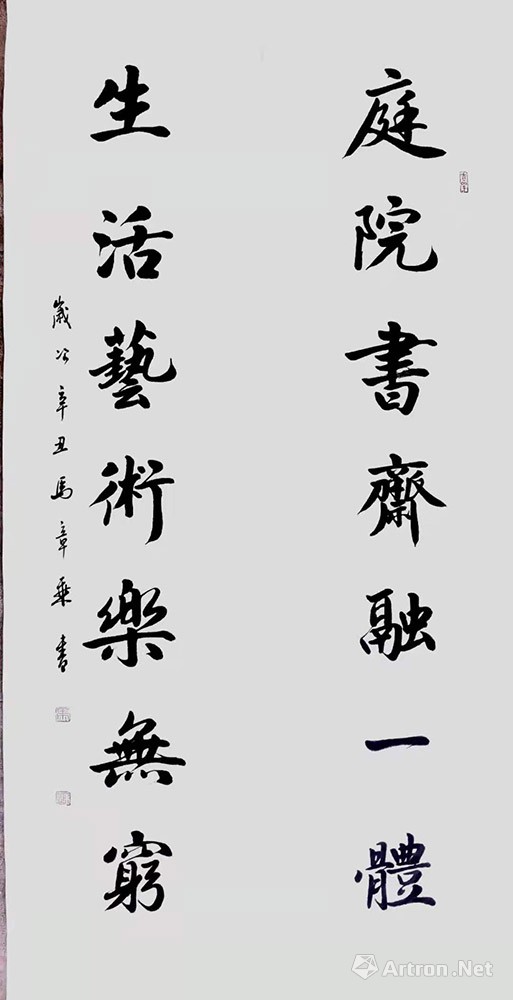 庭院書齋融一體
生活藝術樂無窮
歲次辛丑馬章乘書
Artron.Net